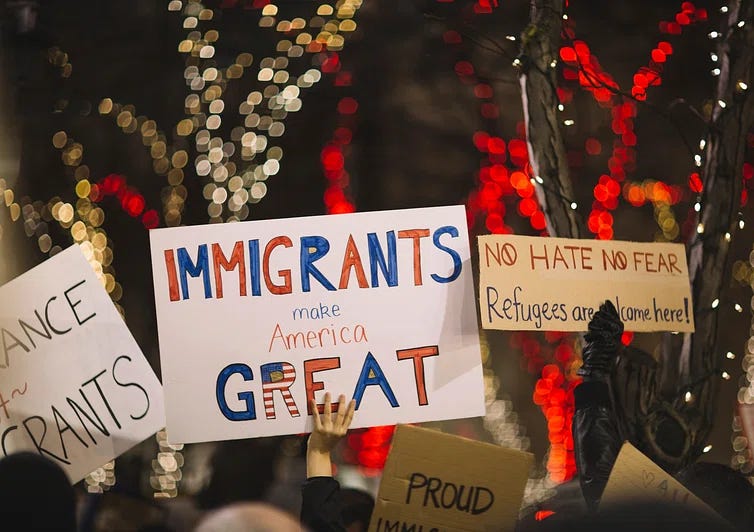 RANCE
GRANTS
IMMIGRANTS
make
America
GREAT
NO HATE NO FEAR
Refugees are lcome here!
PROUD